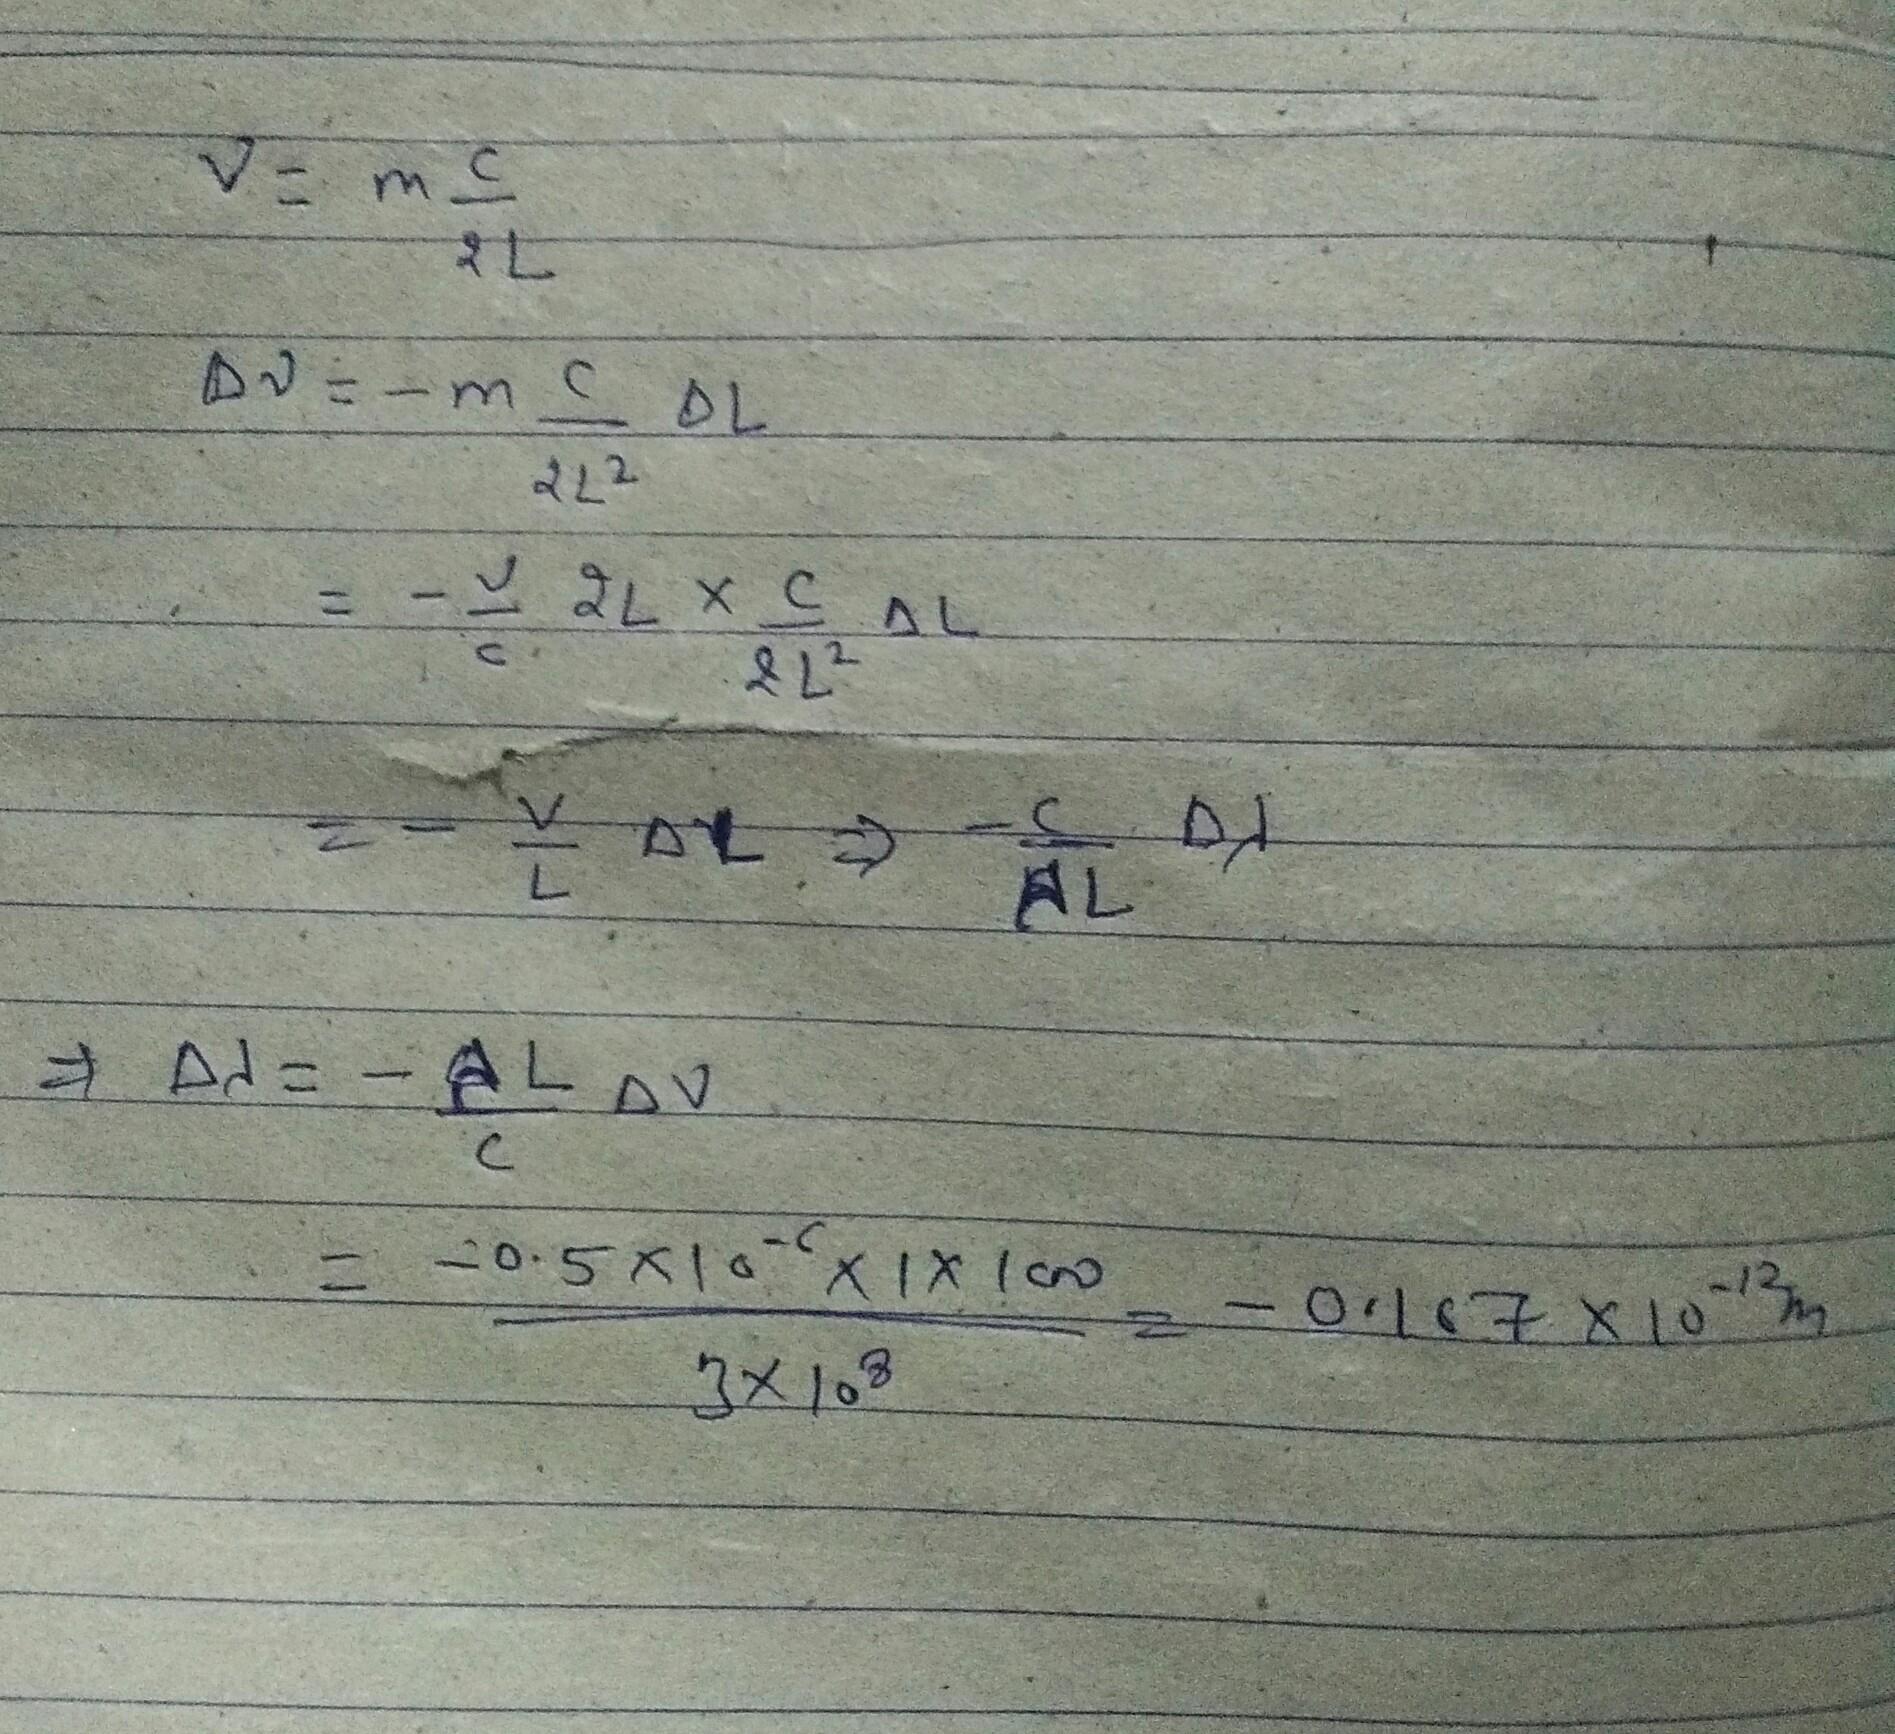 ν = m c/2L
Δν = - m c/2L² ΔL
= - ν/c 2L × c/2L² ΔL
= - ν/L ΔL ⇒ - c/λL Δλ
⇒ Δλ = - λL/c Δν
= -0.5×10⁻⁶×1×100/3×10⁸ = - 0.167 × 10⁻¹² m